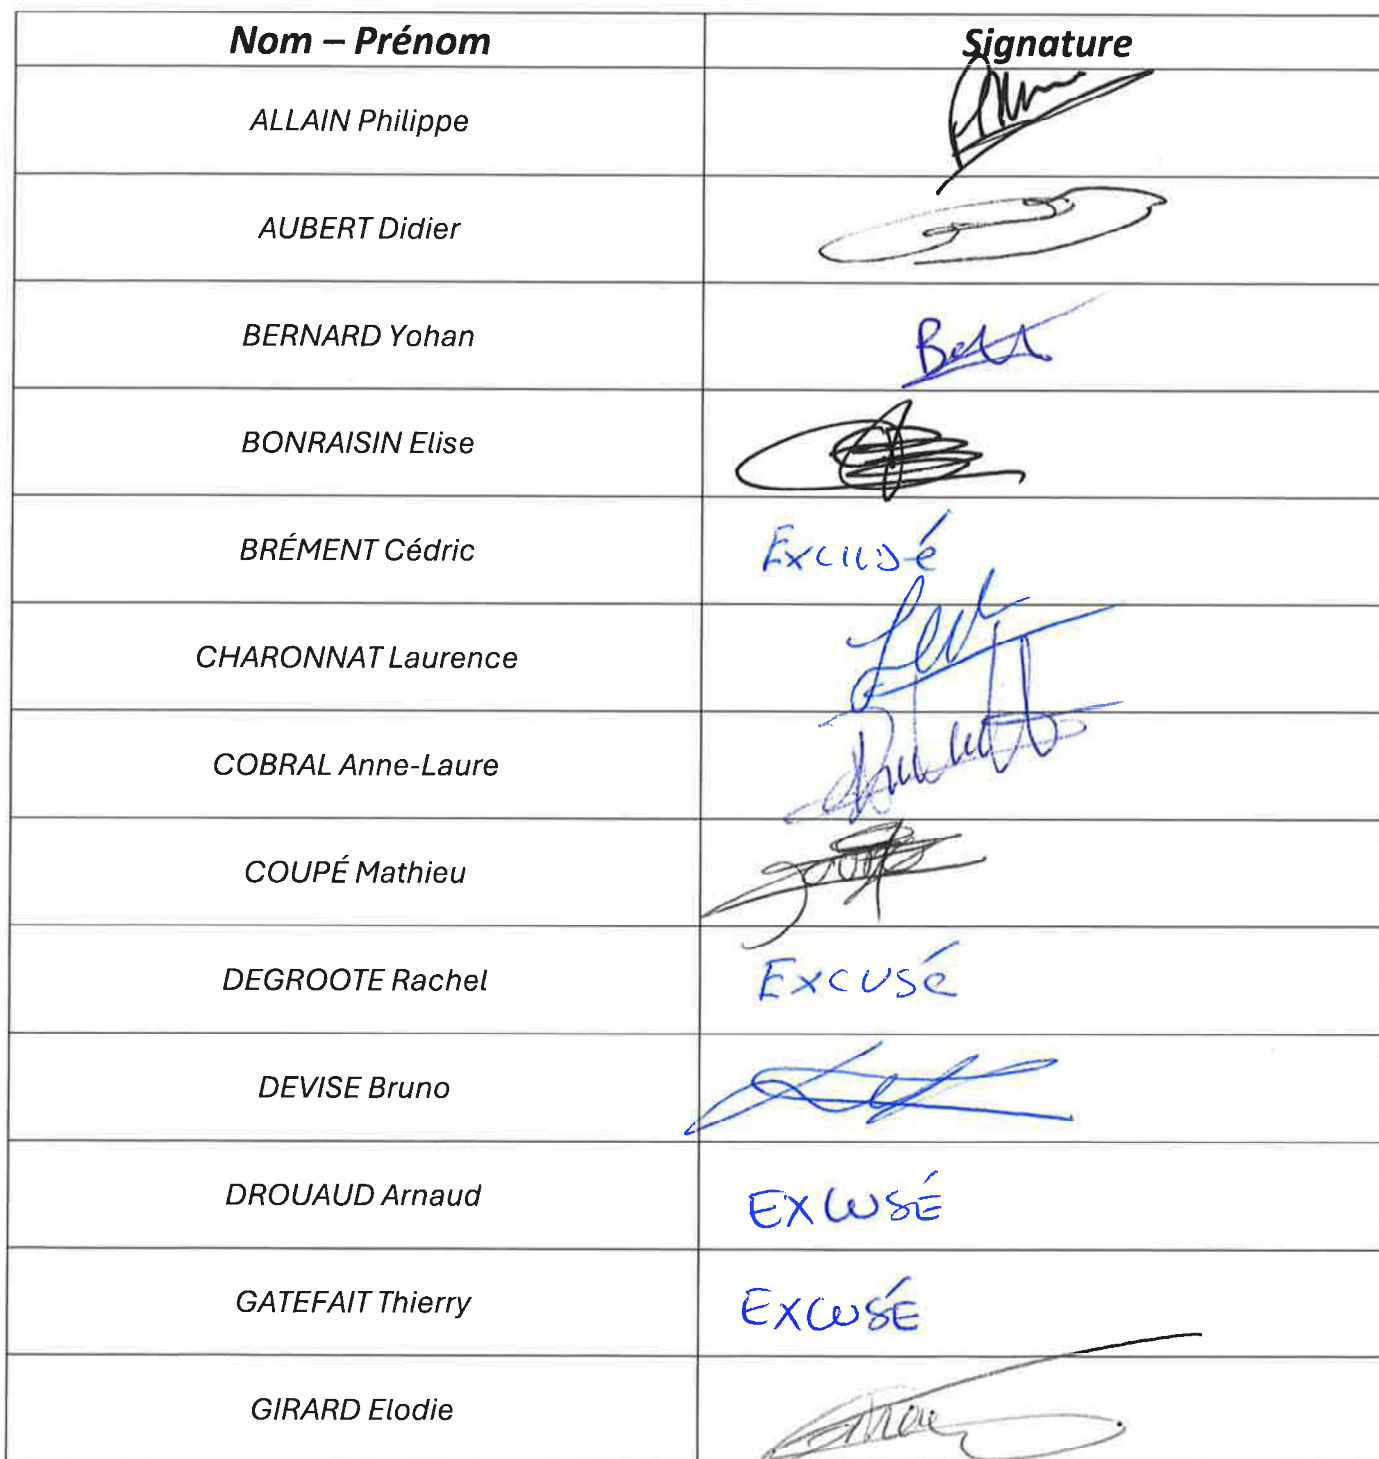 Nom – Prénom Signature
ALLAIN Philippe
AUBERT Didier
BERNARD Yohan
BONRAISIN Elise
BRÉMENT Cédric Excusé
CHARONNAT Laurence
COBRAL Anne-Laure
COUPÉ Mathieu
DEGROOTE Rachel Excusé
DEVISE Bruno
DROUAUD Arnaud EXCUSÉ
GATEFAIT Thierry EXCUSÉ
GIRARD Elodie